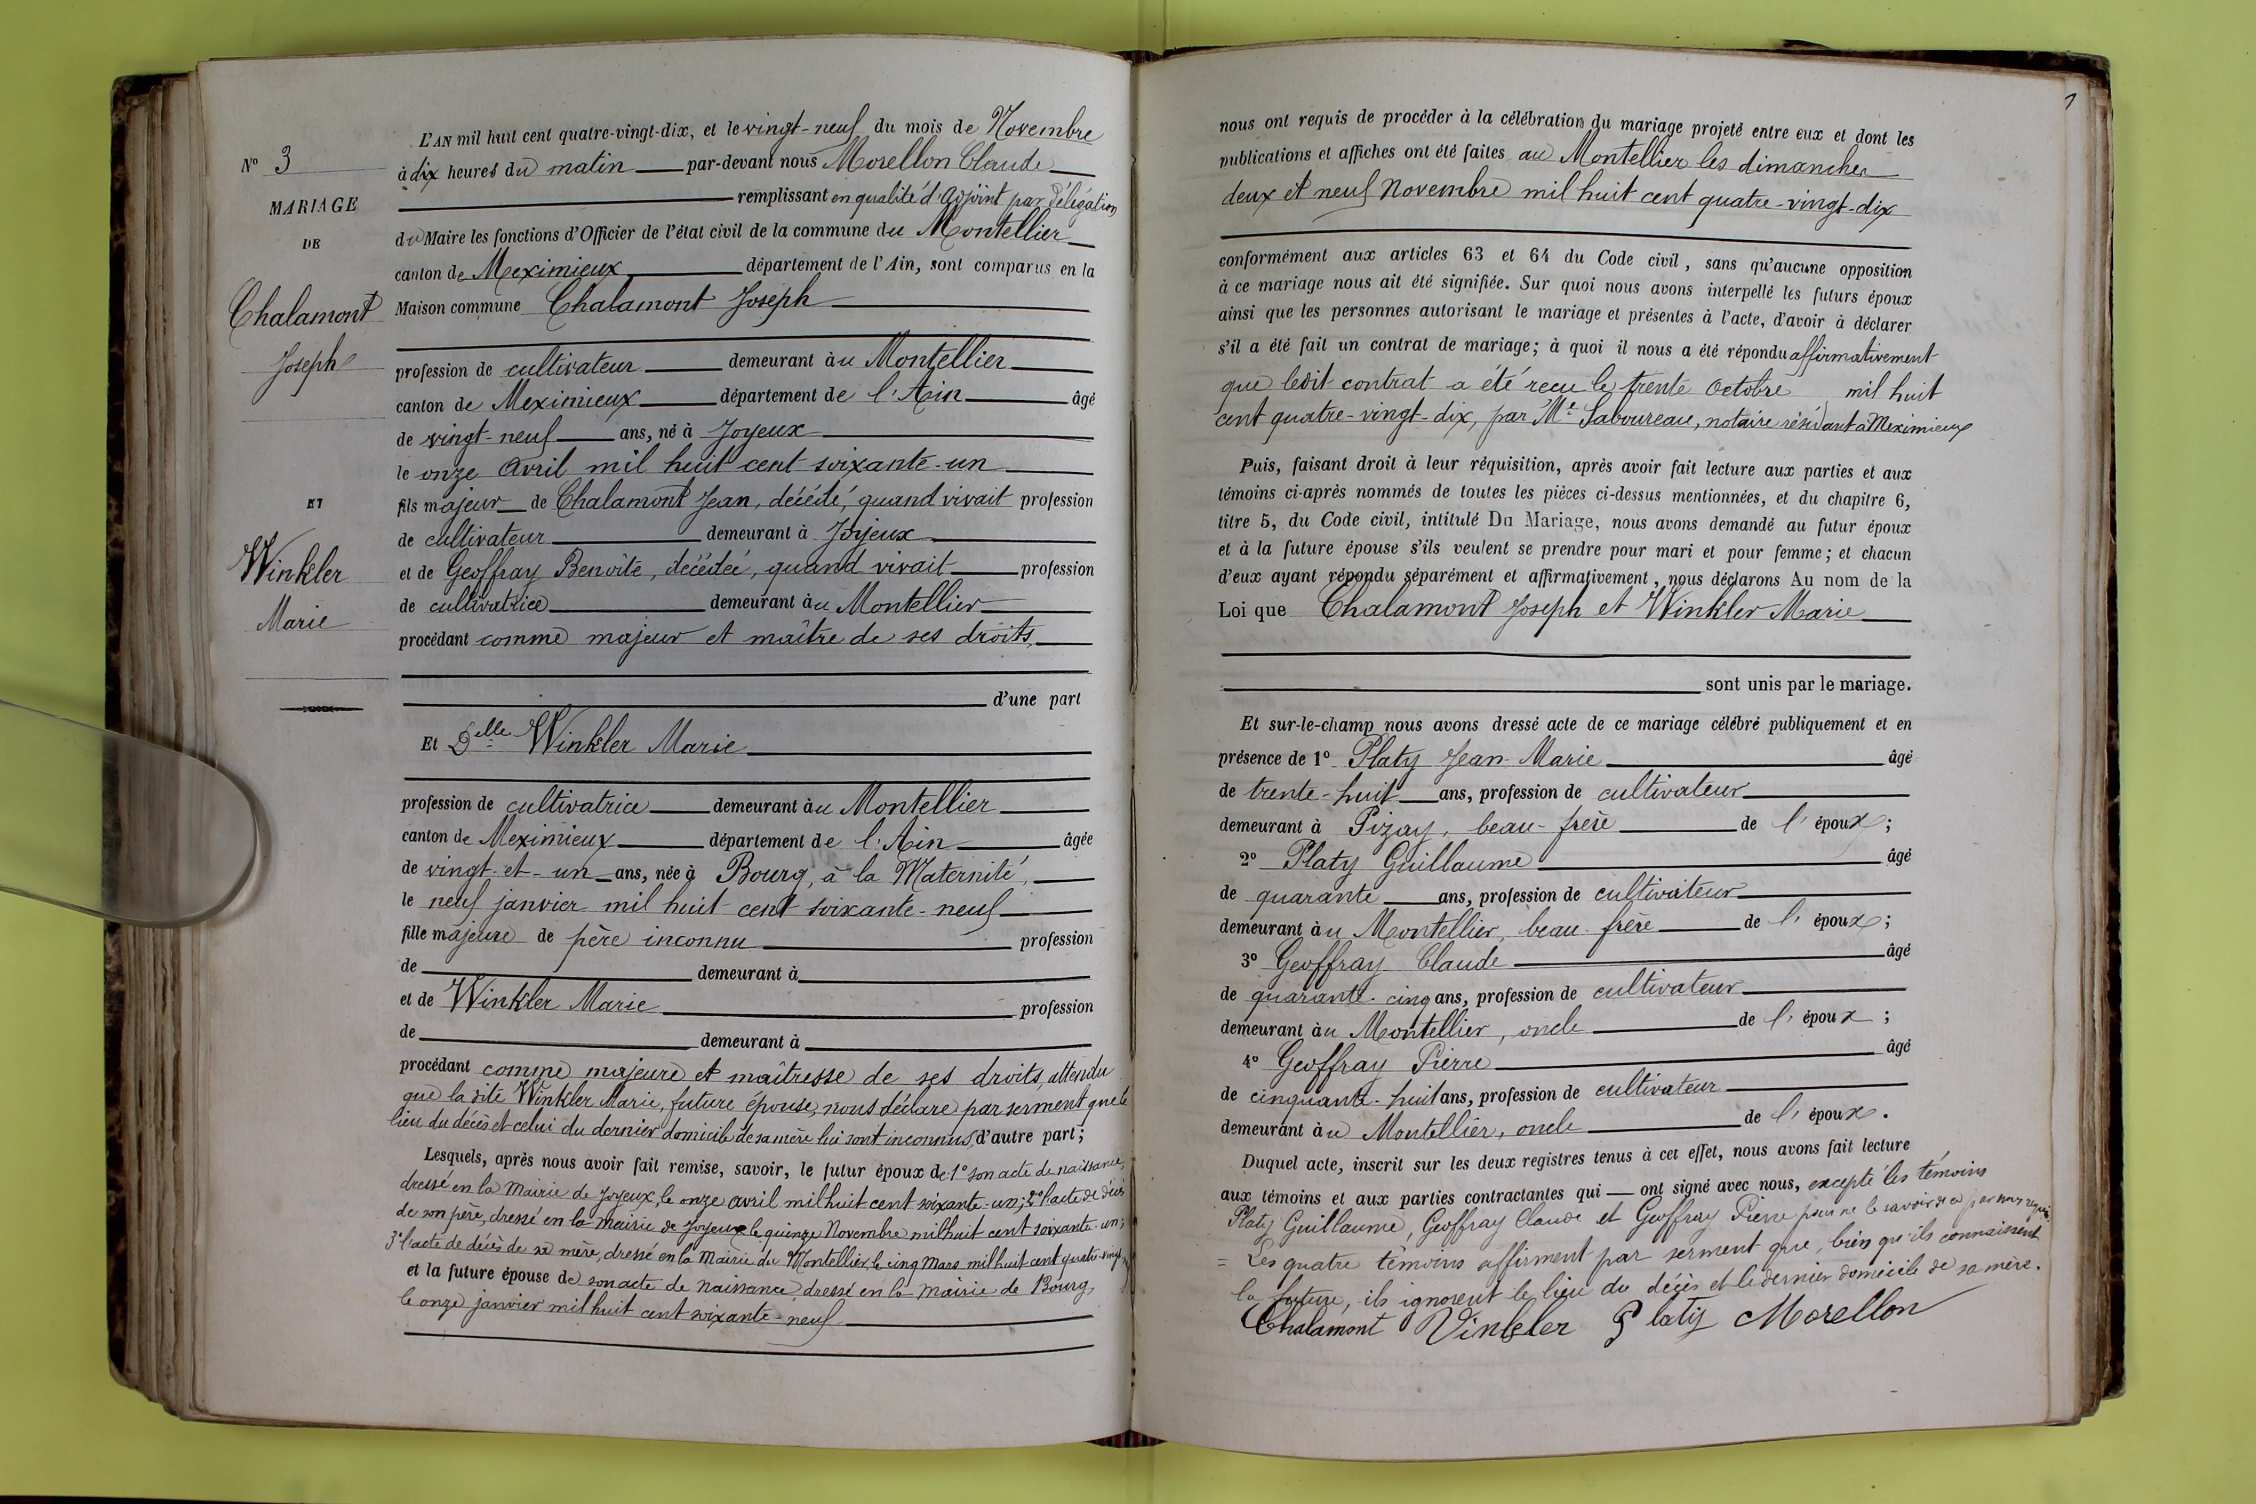 N° 3
MARIAGE
DE
Chalamont
Joseph
ET
Winkler
Marie
L'AN mil huit cent quatre-vingt-dix, et le vingt-neuf du mois de Novembre
à dix heures du matin par-devant nous Morellon Claude
remplissant en qualité d'Adjoint par délégation
du Maire les fonctions d'Officier de l'état civil de la commune du Montellier
canton de Meximieux département de l'Ain, sont comparus en la
Maison commune Chalamont Joseph
profession de cultivateur demeurant àu Montellier
canton de Meximieux département de l'Ain âgé
de vingt-neuf ans, né à Joyeux
le onze Avril mil huit cent soixante-un
fils majeur de Chalamont Jean, décédé, quand vivait profession
de cultivateur demeurant à Joyeux
et de Geoffray Benoîte, décédée, quand vivait profession
de cultivatrice demeurant àu Montellier
procédant comme majeur et maître de ses droits,
d'une part
Et Delle Winkler Marie
profession de cultivatrice demeurant àu Montellier
canton de Meximieux département de l'Ain âgée
de vingt-et-un ans, née à Bourg, à la Maternité,
le neuf janvier mil huit cent soixante-neuf
fille majeure de père inconnu profession
de demeurant à
et de Winkler Marie profession
de demeurant à
procédant comme majeure et maîtresse de ses droits, attendu
que la dite Winkler Marie, future épouse, nous déclare par serment que le
lieu du décès et celui du dernier domicile de sa mère lui sont inconnus, d'autre part;
Lesquels, après nous avoir fait remise, savoir, le futur époux de 1° son acte de naissance,
dressé en la Mairie de Joyeux, le onze avril mil huit cent soixante-un; 2° l'acte de décès
de son père, dressé en la Mairie de Joyeux le quinze Novembre mil huit cent soixante-un;
3° l'acte de décès de sa mère, dressé en la Mairie du Montellier, le cinq Mars mil huit cent quatre-vingt
et la future épouse de son acte de naissance dressé en la Mairie de Bourg,
le onze janvier mil huit cent soixante-neuf
nous ont requis de procéder à la célébration du mariage projeté entre eux et dont les
publications et affiches ont été faites au Montellier les dimanches
deux et neuf Novembre mil huit cent quatre-vingt-dix
conformément aux articles 63 et 64 du Code civil, sans qu'aucune opposition
à ce mariage nous ait été signifiée. Sur quoi nous avons interpellé les futurs époux
ainsi que les personnes autorisant le mariage et présentes à l'acte, d'avoir à déclarer
s'il a été fait un contrat de mariage; à quoi il nous a été répondu affirmativement
que ledit contrat a été reçu le trente Octobre mil huit
cent quatre-vingt-dix, par Me Saboureau, notaire résidant à Meximieux
Puis, faisant droit à leur réquisition, après avoir fait lecture aux parties et aux
témoins ci-après nommés de toutes les pièces ci-dessus mentionnées, et du chapitre 6,
titre 5, du Code civil, intitulé Du Mariage, nous avons demandé au futur époux
et à la future épouse s'ils veulent se prendre pour mari et pour femme; et chacun
d'eux ayant répondu séparément et affirmativement, nous déclarons Au nom de la
Loi que Chalamont Joseph et Winkler Marie
sont unis par le mariage.
Et sur-le-champ nous avons dressé acte de ce mariage célébré publiquement et en
présence de 1° Platy Jean-Marie âgé
de trente-huit ans, profession de cultivateur
demeurant à Pizay, beau-frère de l'époux;
2° Platy Guillaume âgé
de quarante ans, profession de cultivateur
demeurant àu Montellier, beau-frère de l'époux;
3° Geoffray Claude âgé
de quarante-cinq ans, profession de cultivateur
demeurant àu Montellier, oncle de l'époux;
4° Geoffray Pierre âgé
de cinquante-huit ans, profession de cultivateur
demeurant àu Montellier, oncle de l'époux.
Duquel acte, inscrit sur les deux registres tenus à cet effet, nous avons fait lecture
aux témoins et aux parties contractantes qui ont signé avec nous, excepté les témoins
Platy Guillaume, Geoffray Claude et Geoffray Pierre pour ne le savoir de ce par nous requis.
= Les quatre témoins affirment par serment que, bien qu'ils connaissent
la future, ils ignorent le lieu du décès et le dernier domicile de sa mère.
Chalamont Vinkler Platy Morellon